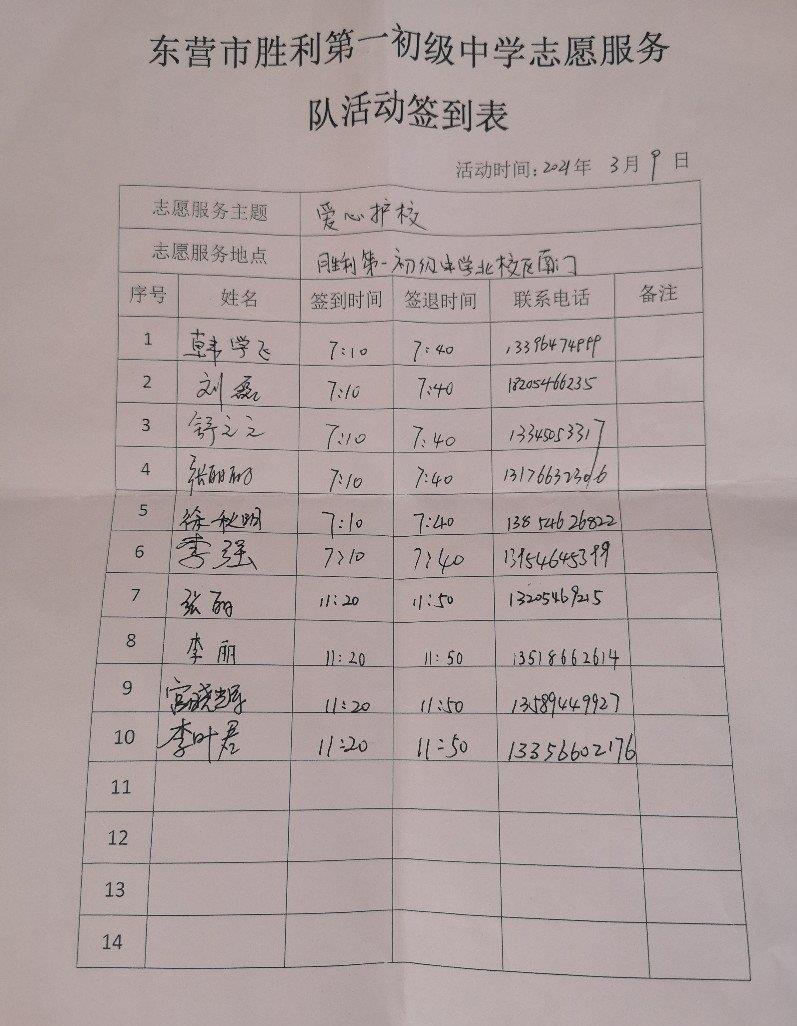 东营市胜利第一初级中学志愿服务
队活动签到表
活动时间:2021年 3月9日
志愿服务主题 爱心护校
志愿服务地点 胜利第一初级中学北校区南门
序号 姓名 签到时间 签退时间 联系电话 备注
1 韩学飞 7:10 7:40 13396474999
2 刘磊 7:10 7:40 18205466235
3 舒文文 7:10 7:40 13345053317
4 张丽丽 7:10 7:40 13176632306
5 徐秋明 7:10 7:40 13854626822
6 李强 7:10 7:40 13954645399
7 张丽 11:20 11:50 13205469215
8 李丽 11:20 11:50 13518662614
9 宫晓辉 11:20 11:50 13589449927
10 李叶君 11:20 11:50 13356602176
11
12
13
14